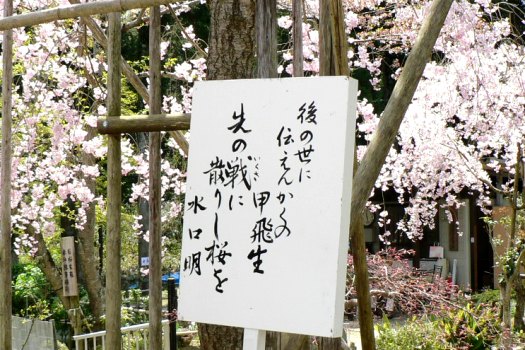 後の世に
伝えんかの
甲飛生
先の戦に
いくさ
散りし桜を
水口明